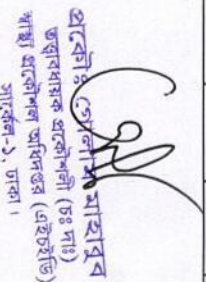 প্রকৌঃ মাহাবুব
তত্ত্বাবধায়ক প্রকৌশলী (চঃ দাঃ)
স্বাস্থ্য প্রকৌশল অধিদপ্তর (এইচইডি)
সার্কেল-১, ঢাকা।